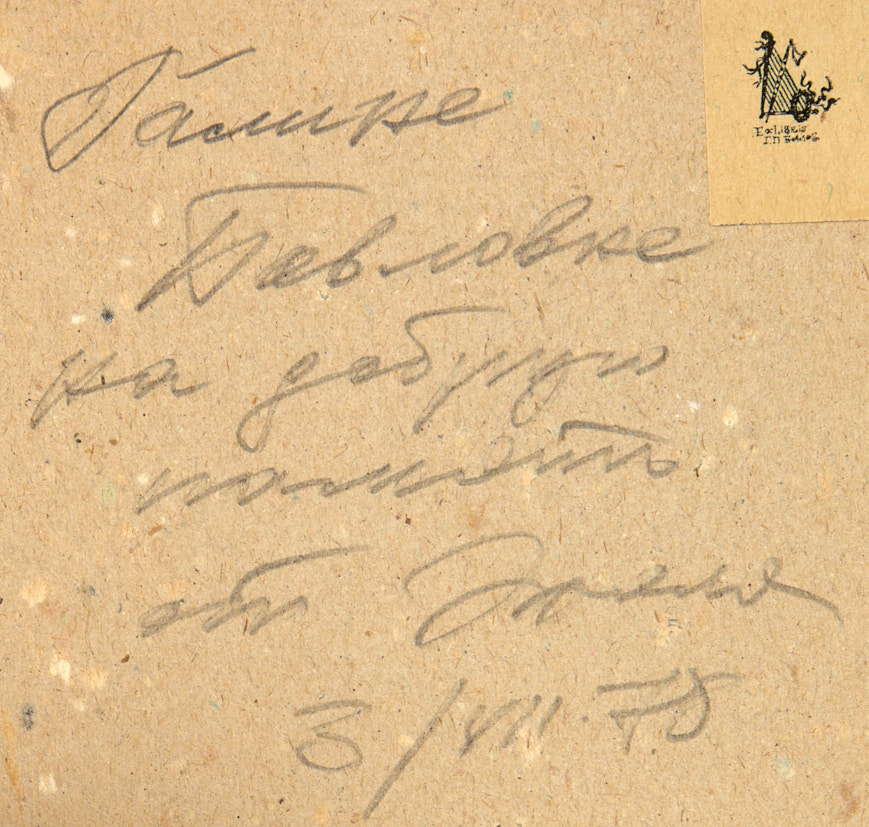 Галине
Павловне
на добрую
память
от
3/VII 75
ExLibris
Г.П